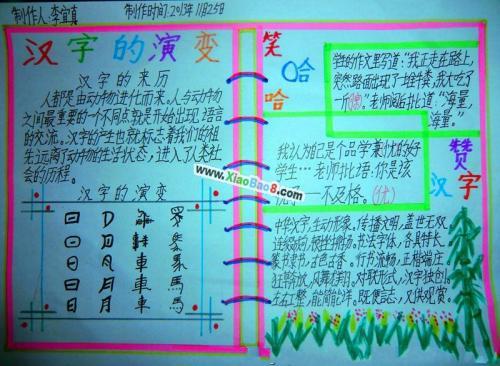 制作人:李宜真
制作时间:2013年11月25日
汉字的演变
汉字的来历
人都是由动物进化而来。人与动物
之间最重要的一个不同点就是开始出现语言
的交流。汉字的产生也就标志着我们的祖
先远离了动物的生活状态,进入了人类社
会的历程。
汉字的演变
日 月 車 馬
笑哈哈
学生的作文里写道:"我正走在路上,
突然路面出现了一堆牛粪,我大吃了
一斤(惊)。"老师阅后批道:"海量,
海量。"
我认为自己是个品学兼优的好
学生…老师批语:你是该
一不及格。(优)
赞汉字
中华文字,生动形象,传播文明,盖世无双
书法字体,各具特长
篆书隶书,古色古香。行书流畅,正楷端庄
对联形式,汉字独创。
左右工整,能简能详。既便言志,又供观赏。
XiaoBao8.com